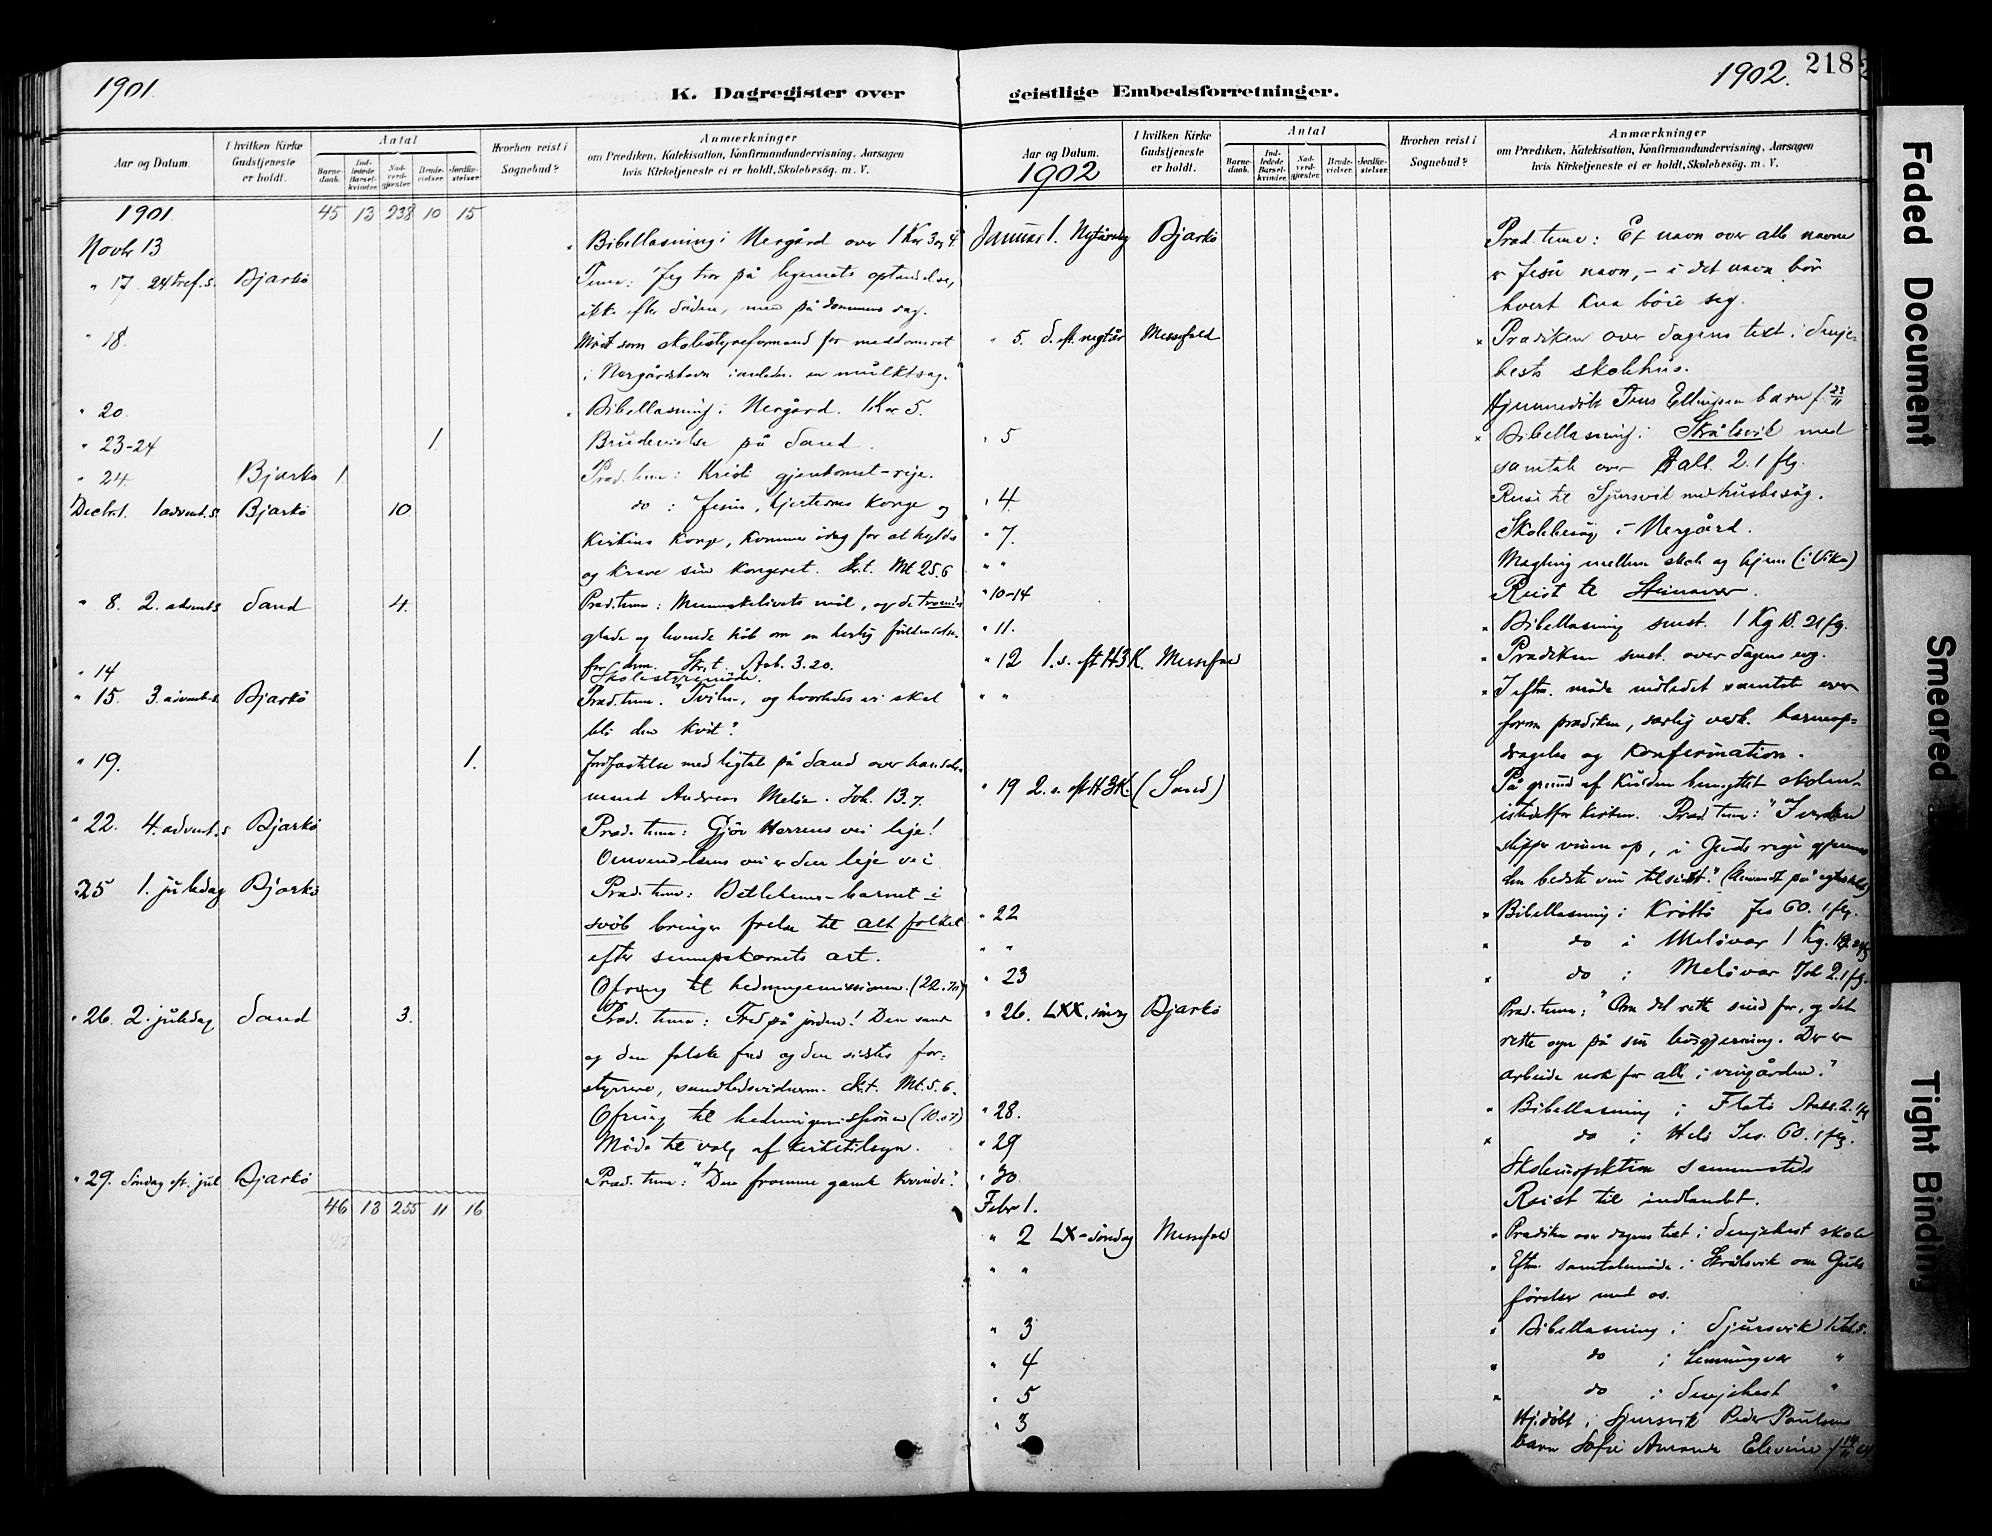 1901.
K. Dagregister over
Aar og Datum.
I hvilken Kirke Gudstjeneste er holdt.
Antal
Barne-daab.
Ind-ledede Barsel-kvinder.
Nad-verd-gjester.
Brude-vielser.
Jordfæ-stelser.
Hvorhen reist i Sognebud?
Anmærkninger
om Prædiken, Katekisation, Konfirmandundervisning, Aarsagen
hvis Kirketjeneste ei er holdt, Skolebesøg. m. V.
1901. 45 13 238 10 15
Novbr 13 Bibellæsning i Nergård over 1 Kor 3 og 4.
" 17 24 s. e. tref. Bjarkö Tema: Jeg tror på legemets opstandelse,
ikke efter döden, men på dommens dag.
" 18. Möte som skolestyreformand for meddomsret
i Nergårdshavn i anledn. en mulktsag.
" 20. Bibellæsning i Nergård. 1 Kor 5.
" 23-24 1. Brudevielse på Sand.
" 24 Bjarkö 1 Præd. tema: Kristi gjenkomst
Decbr 1. 1 advent s. Bjarkö 10. do : Jesus, hjerternes konge og
kirkens konge, kommer idag for at hylde
og kræve sin kongeret. Skr. t. Mt 25.6
" 8. 2. advent s Sand 4. Præd. tema: Menneskelivets mål, og de troendes
glade og levende håb om en herlig fuldendelse.
for dem. Skr. t. Aab. 3.20.
" 14 Skolestyremöde.
" 15. 3. advent s. Bjarkö Præd. tema: "Tvilen, og hvorledes vi skal
bli den kvit?
" 19. 1. Jordfæstelse med ligtale på Sand over
mand Andreas Melöe. Joh. 13.7.
" 22. 4. advent s Bjarkö Præd. tema: Gjör Herrens vei leje!
Omvendelsens vei er den leje vei
" 25 1. juledag Bjarkö Præd. tema: Betlehems-barnet i
svöb bringer frelse til alt folket
efter sennepskornets art.
Ofring til hedningemissionen.
" 26. 2. juledag Sand 3. Præd. tema: Fred på jorden! Den sande
og den falske fred og den sidstes for-
styrrere, sandhedsvidnerne. Skr. t. Mt. 5.6.
Ofring til hedningemissionen (10.07)
Möde til valg af kirketilsyn.
" 29. Söndag eft. jul Bjarkö Præd. tema: "Den fromme gamle kvinde".
46 13 255 11 16
geistlige Embedsforretninger.
1902. 218
Aar og Datum.
1902
I hvilken Kirke Gudstjeneste er holdt.
Antal
Barne-daab.
Ind-ledede Barsel-kvinder.
Nad-verd-gjester.
Brude-vielser.
Jordfæ-stelser.
Hvorhen reist i Sognebud?
Anmærkninger
om Prædiken, Katekisation, Konfirmandundervisning, Aarsagen
hvis Kirketjeneste ei er holdt, Skolebesøg. m. V.
Januar 1. Nytårsdag Bjarkö Præd. tema: Et navn over alle navne
er Jesu navn, - i det navn bör
hvert kne böie seg.
" 5. S. eft. nytår Messefald Prædiken over dagens text i Senje-
hests skolehus.
Hjemmedöbt Jens Ellingsen barn f. 23/11
" 5 Bibellæsning i Skrålsvik med
samtale over 2.1 flg.
" 4. Reise til Sjursvik med husbesög.
" 7. Skolebesög i Nergård.
" " Mægling mellem skole og hjem (i Vika)
" 10-14 Reist til Steinavær.
" 11. Bibellæsning smst. 1 Kg 18. 21 flg.
" 12 1. s. eft H3K. Messefald Prædiken smst. over dagens evg.
" " I eftm. möde indledet samtale over
form. prædiken, særlig vedk. barneop-
dragelse og konfirmation.
" 19 2. s. eft H3K. (Sand) På grund af kulden benyttet skolen
istedetfor kirken. Præd. tema: "I verden
slipper vinen op, i Guds rige gjemmes
den bedste vin tilsidst."
" 22 Bibellæsning i Kröttö Jes 60. 1 flg.
" " do i Melövær 1 Kg. 18. 21 flg
" 23 do i Melövær Joh 2. 1 flg.
" 26. LXX. söndag Bjarkö Præd. tema: "Om det rette sind for, og det
rette syn på sin livsgjerning. Der er
arbeide nok for alle i vingården."
" 28. Bibellæsning i Flatö Aab. 2. 1 flg
" 29 do i Helö Jes. 60. 1 flg.
" 30 Skoleinspektion sammesteds
Febr 1. Reist til indlandet.
" 2 LX-söndag Messefald Prædiken over dagens text i Senjehest skole
" " Eftm. samtalemöde i Skrålsvik om Guds
förelser med os.
" 3 Bibellæsning i Sjursvik
" 4 do i Lemmingvær "
" 5 do i Senjehest "
" 3 Hj. döbt i Sjursvik Peder Paulsens
barn Sofie Amanda Elevine
Faded Document
Smeared
Tight Binding